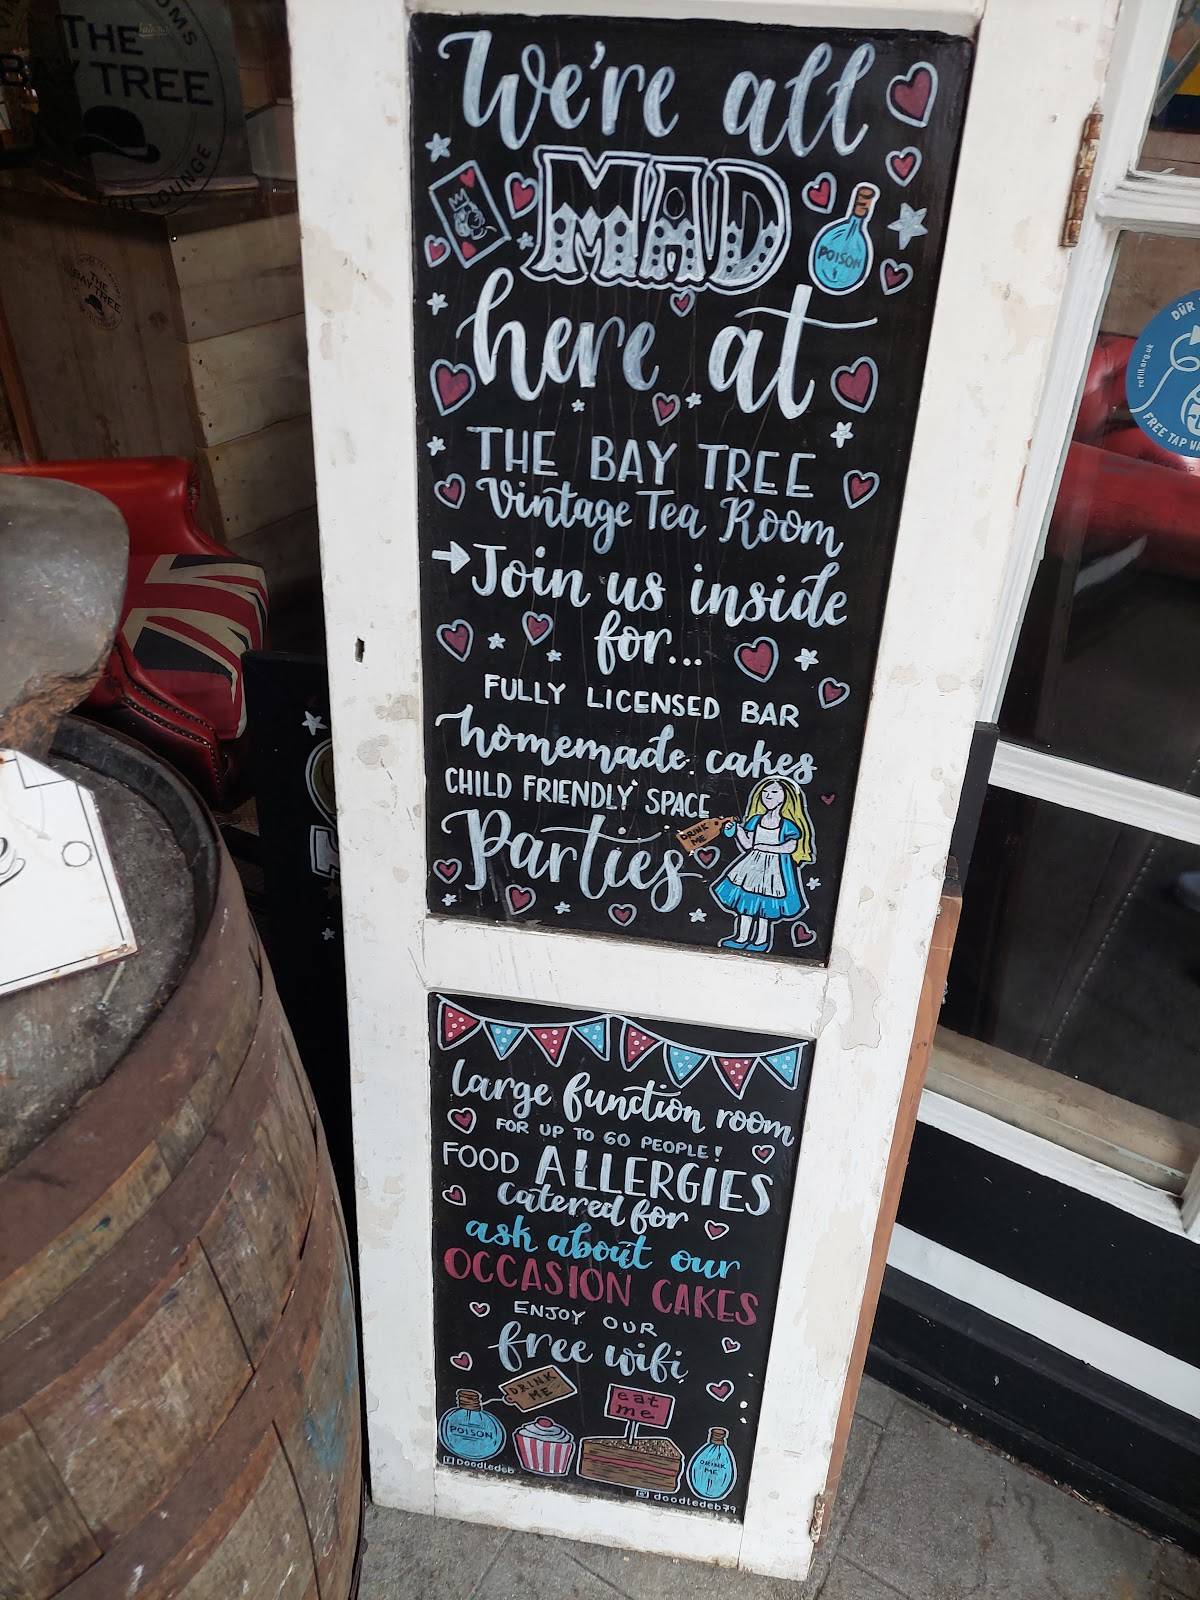 THE
BAY TREE
LOUNGE
THE
BAY TREE
We're all
MAD
POISON
here at
THE BAY TREE
Vintage Tea Room
Join us inside
for...
FULLY LICENSED BAR
homemade cakes
CHILD FRIENDLY SPACE
Parties
DRINK
ME
large function room
FOR UP TO 60 PEOPLE!
FOOD ALLERGIES
catered for
ask about our
OCCASION CAKES
ENJOY OUR
free wifi
DRINK
ME
eat
me
POISON
DRINK
ME
Doodledeb
doodledeb79
DŴR
refill.org.uk
FREE TAP WA